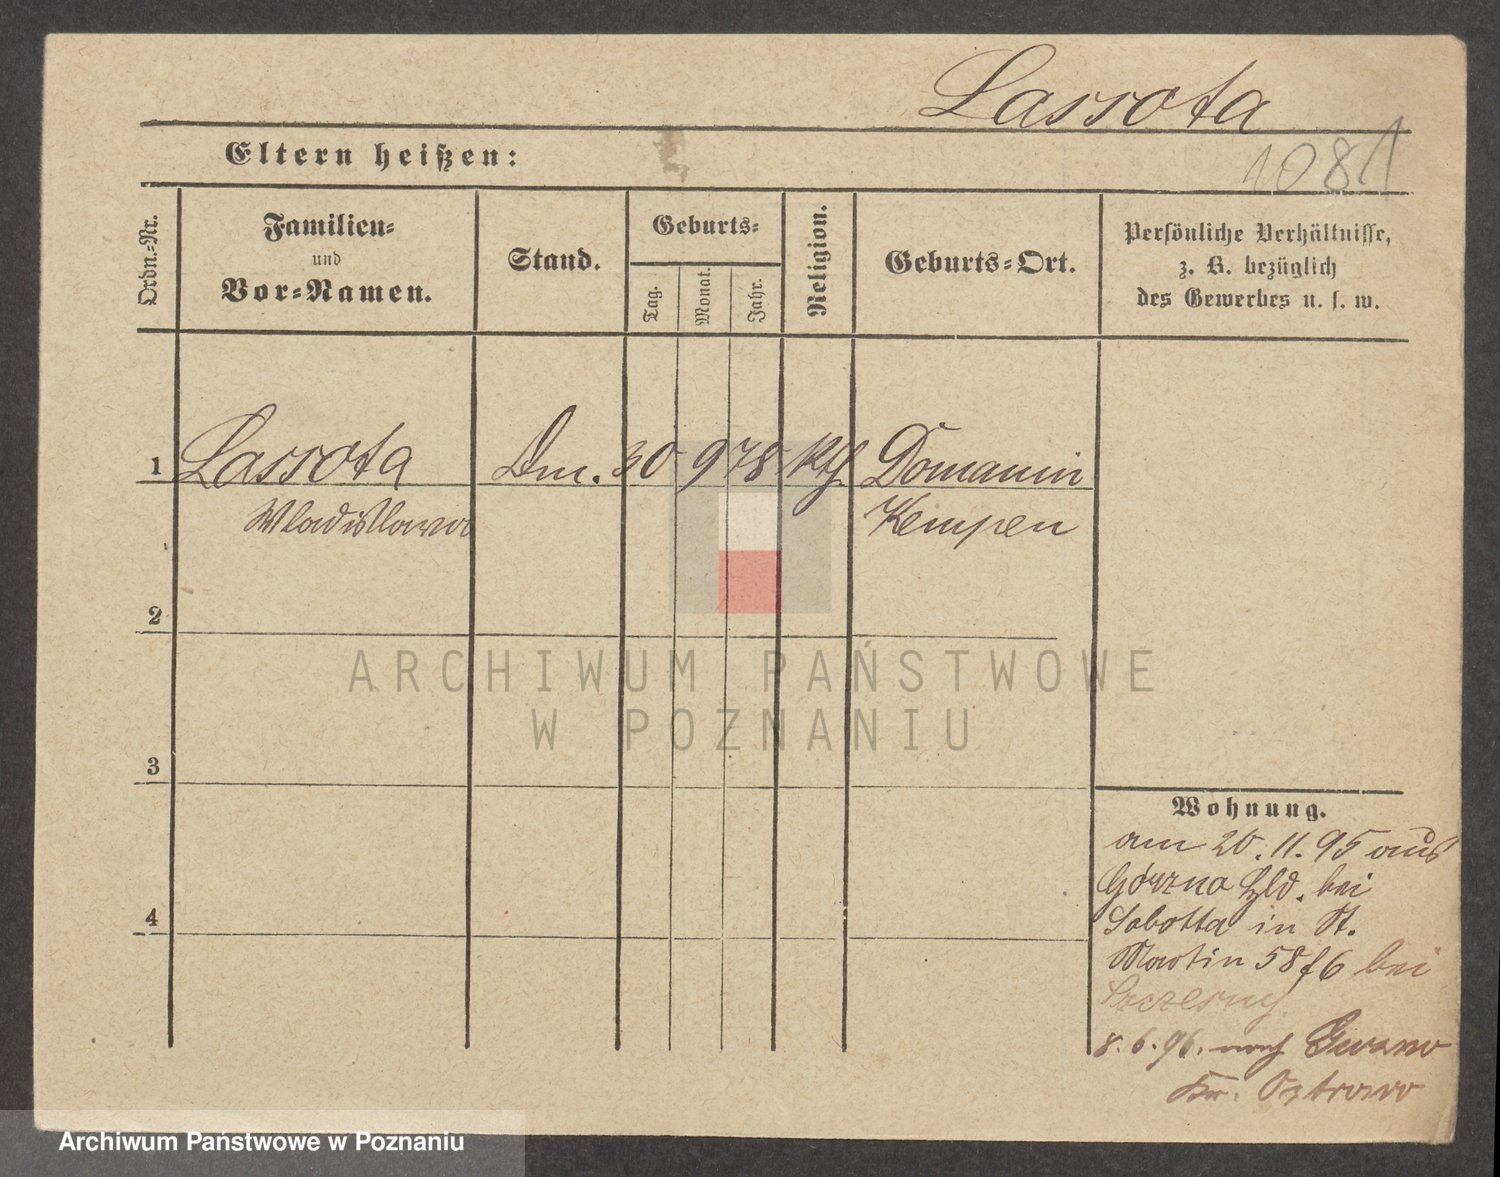 Lassota
1081
Eltern heißen:
Ordn.-Nr.
Familien-
und
Vor-Namen.
Stand.
Geburts-
Tag.
Monat.
Jahr.
Religion.
Geburts-Ort.
Persönliche Verhältnisse,
z. B. bezüglich
des Gewerbes u. s. w.
1 Lassota Dm. 30 9 78 kth Domanin
Wladislawa Kempen
2
3
4
Wohnung.
am 20. 11. 95 aus
Górzno Hld. bei
Sabotta in St.
Martin 58 f 6 bei
Szczesny
8. 6. 96. nach
Kr. Ostrowo
ARCHIWUM PAŃSTWOWE
W POZNANIU
Archiwum Państwowe w Poznaniu